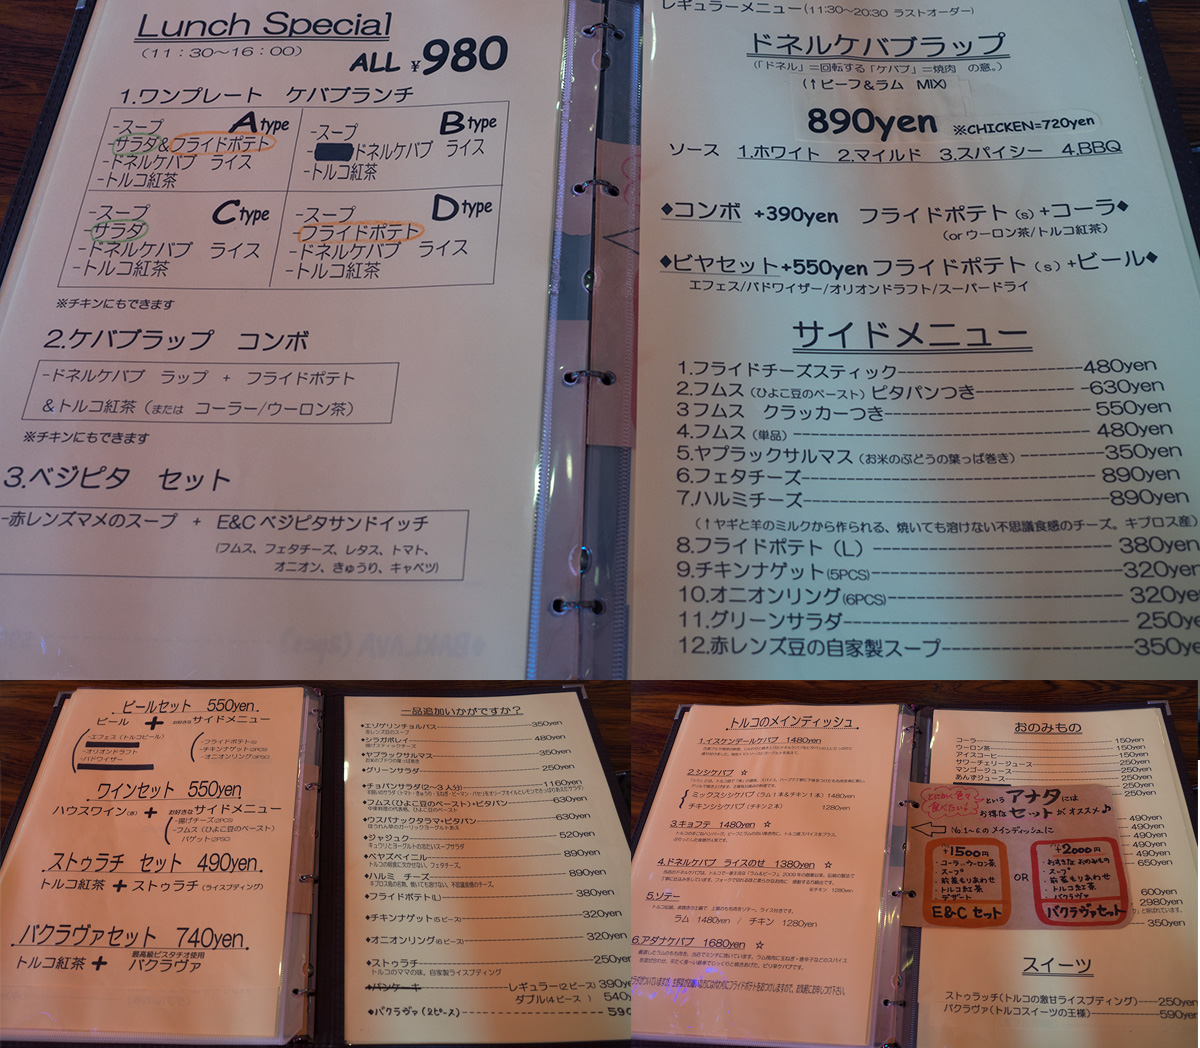 Lunch Special
(11:30～16:00)
ALL ¥980
1.ワンプレート ケバブランチ
A type
-スープ
-サラダ&フライドポテト
-ドネルケバブ ライス
-トルコ紅茶
B type
-スープ
ドネルケバブ ライス
-トルコ紅茶
C type
-スープ
-サラダ
-ドネルケバブ ライス
-トルコ紅茶
D type
-スープ
-フライドポテト
-ドネルケバブ ライス
-トルコ紅茶
※チキンにもできます
2.ケバブラップ コンボ
-ドネルケバブ ラップ + フライドポテト
&トルコ紅茶（または コーラー/ウーロン茶）
※チキンにもできます
3.ベジピタ セット
-赤レンズマメのスープ + E&Cベジピタサンドイッチ
(フムス、フェタチーズ、レタス、トマト、
オニオン、きゅうり、キャベツ)
レギュラーメニュー(11:30～20:30 ラストオーダー)
ドネルケバブラップ
(「ドネル」＝回転する「ケバブ」＝焼肉 の意。)
(↑ビーフ&ラム MIX)
890yen ※CHICKEN=720yen
ソース 1.ホワイト 2.マイルド 3.スパイシー 4.BBQ
◆コンボ +390yen フライドポテト(s)+コーラ◆
(or ウーロン茶/トルコ紅茶)
◆ビヤセット+550yen フライドポテト(s)+ビール◆
エフェス/バドワイザー/オリオンドラフト/スーパードライ
サイドメニュー
1.フライドチーズスティック 480yen
2.フムス(ひよこ豆のペースト)ピタパンつき 630yen
3フムス クラッカーつき 550yen
4.フムス(単品) 480yen
5.ヤプラックサルマス(お米のぶどうの葉っぱ巻き) 350yen
6.フェタチーズ 890yen
7.ハルミチーズ 890yen
(↑ヤギと羊のミルクから作られる、焼いても溶けない不思議食感のチーズ。キプロス産)
8.フライドポテト（L） 380yen
9.チキンナゲット(5PCS) 320yen
10.オニオンリング(6PCS) 320ye
11.グリーンサラダ 250ye
12.赤レンズ豆の自家製スープ 350ye
ビールセット 550yen
ビール + お好きなサイドメニュー
-エフェス(トルコビール)
-オリオンドラフト
-バドワイザー
-フライドポテト(S)
-チキンナゲット(2PCS)
-オニオンリング(3PCS)
ワインセット 550yen
ハウスワイン(赤) + お好きなサイドメニュー
-揚げチーズ(2PCS)
-フムス(ひよこ豆のペースト)
バゲット(2PSC)
ストゥラチ セット 490yen
トルコ紅茶 + ストゥラチ(ライスプディング)
バクラヴァセット 740yen
トルコ紅茶 + 最高級ピスタチオ使用 バクラヴァ
一品追加いかがですか？
◆エゾゲリンチョルバス 350yen
赤レンズ豆のスープ
◆シラガボレイ 480yen
揚げスティックチーズ
◆ヤプラックサルマス 350yen
◆グリーンサラダ 250yen
◆チョバンサラダ(2～3人分) 1160yen
◆フムス(ひよこ豆のペースト)・ピタパン 630yen
◆ウスパナックタラマ・ピタパン 630yen
ほうれん草のガーリックヨーグルトあえ
◆ジャジュク 520yen
キュウリとヨーグルトの冷たいスープサラダ
◆ベヤズペイニル 890yen
◆ハルミ チーズ 890yen
◆フライドポテト(L) 380yen
◆チキンナゲット(5ピース) 320yen
◆オニオンリング(6ピース) 320yen
◆ストゥラチ 250yen
トルコのママの味、自家製ライスプティング
◆パンケーキ レギュラー(2ピース) 390ye
ダブル(4ピース) 540y
◆バクラヴァ(2ピース) 590
トルコのメインディッシュ
1.イスケンデールケバブ 1480yen
2.シシケバブ ☆
ミックスシシケバブ(ラム1本&チキン1本) 1480yen
チキンシシケバブ(チキン2本) 1280yen
3.キョフテ 1480yen☆
4.ドネルケバブ ライスのせ 1380yen ☆
5.ソテー
ラム 1480yen / チキン 1280yen
6.アダナケバブ 1680yen ☆
おのみもの
コーラ 150yen
ウーロン茶 150yen
アイスコーヒー 150yen
サワーチェリージュース 250yen
マンゴージュース 250yen
あんずジュース 250yen
とにかく色々食べたい！
というアナタには
お得なセットがオススメ♪
No.1～6のメインディッシュに
+1500円
・コーラorウーロン茶
・スープ
・前菜もりあわせ
・トルコ紅茶
・デザート
E&Cセット
OR
+2000円
・お好きなおのみもの
・スープ
・前菜もりあわせ
・トルコ紅茶
・バクラヴァ
バクラヴァセット
490yen
490yen
490yen
490yen
650yen
600yen
2980yen
350yen
スイーツ
ストゥラッチ(トルコの激甘ライスプティング) 250yen
バクラヴァ(トルコスイーツの王様) 590yen